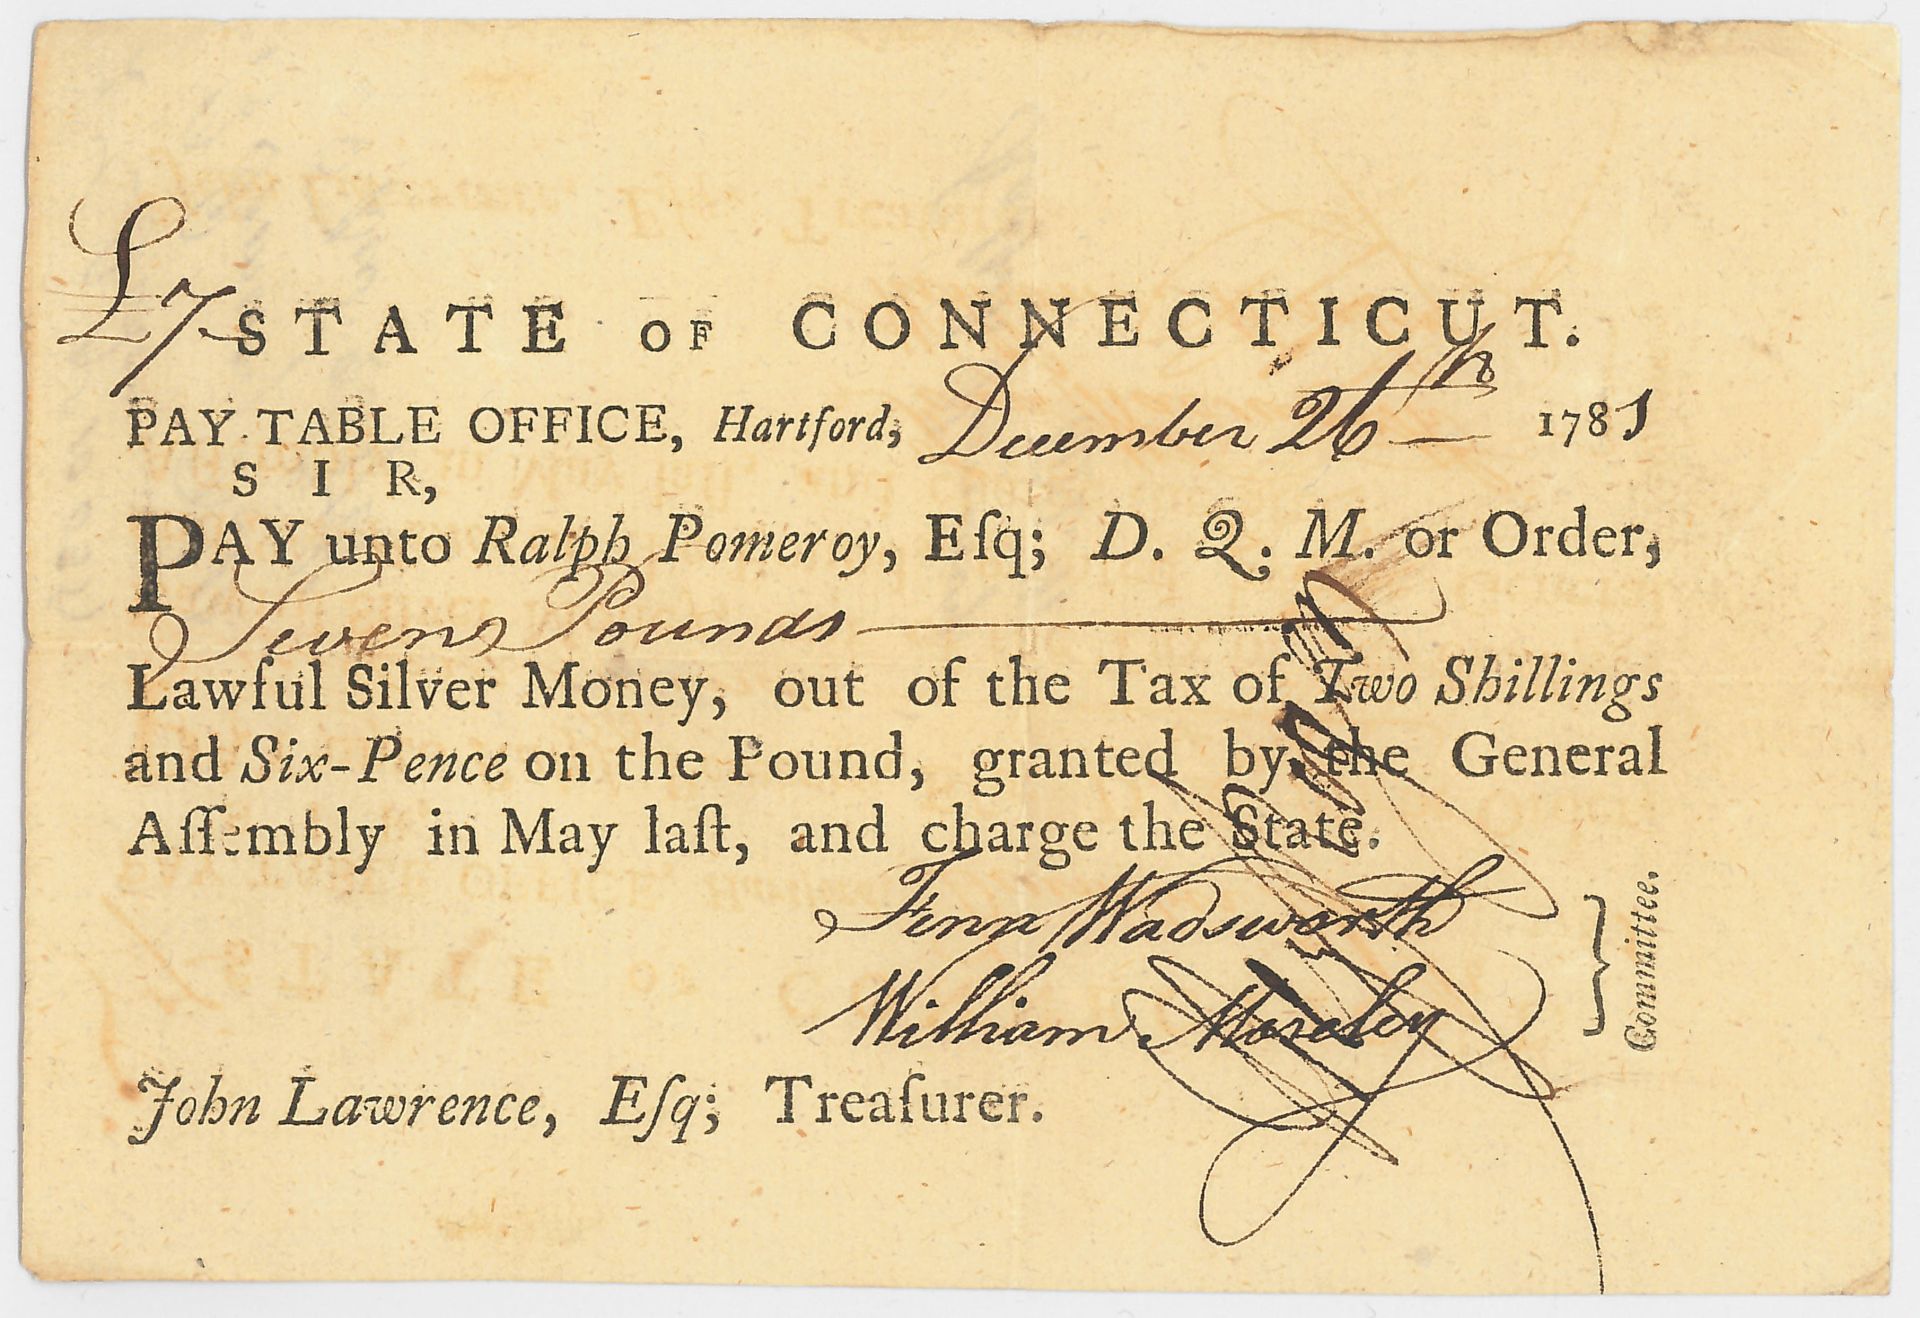 £7
STATE OF CONNECTICUT.
PAY-TABLE OFFICE, Hartford, December 26th 1781
SIR,
PAY unto Ralph Pomeroy, Eſq; D. Q. M. or Order,
Seven Pounds
Lawful Silver Money, out of the Tax of Two Shillings
and Six-Pence on the Pound, granted by the General
Aſſembly in May laſt, and charge the State.
Fenn Wadsworth
William Moseley
Committee.
John Lawrence, Eſq; Treaſurer.